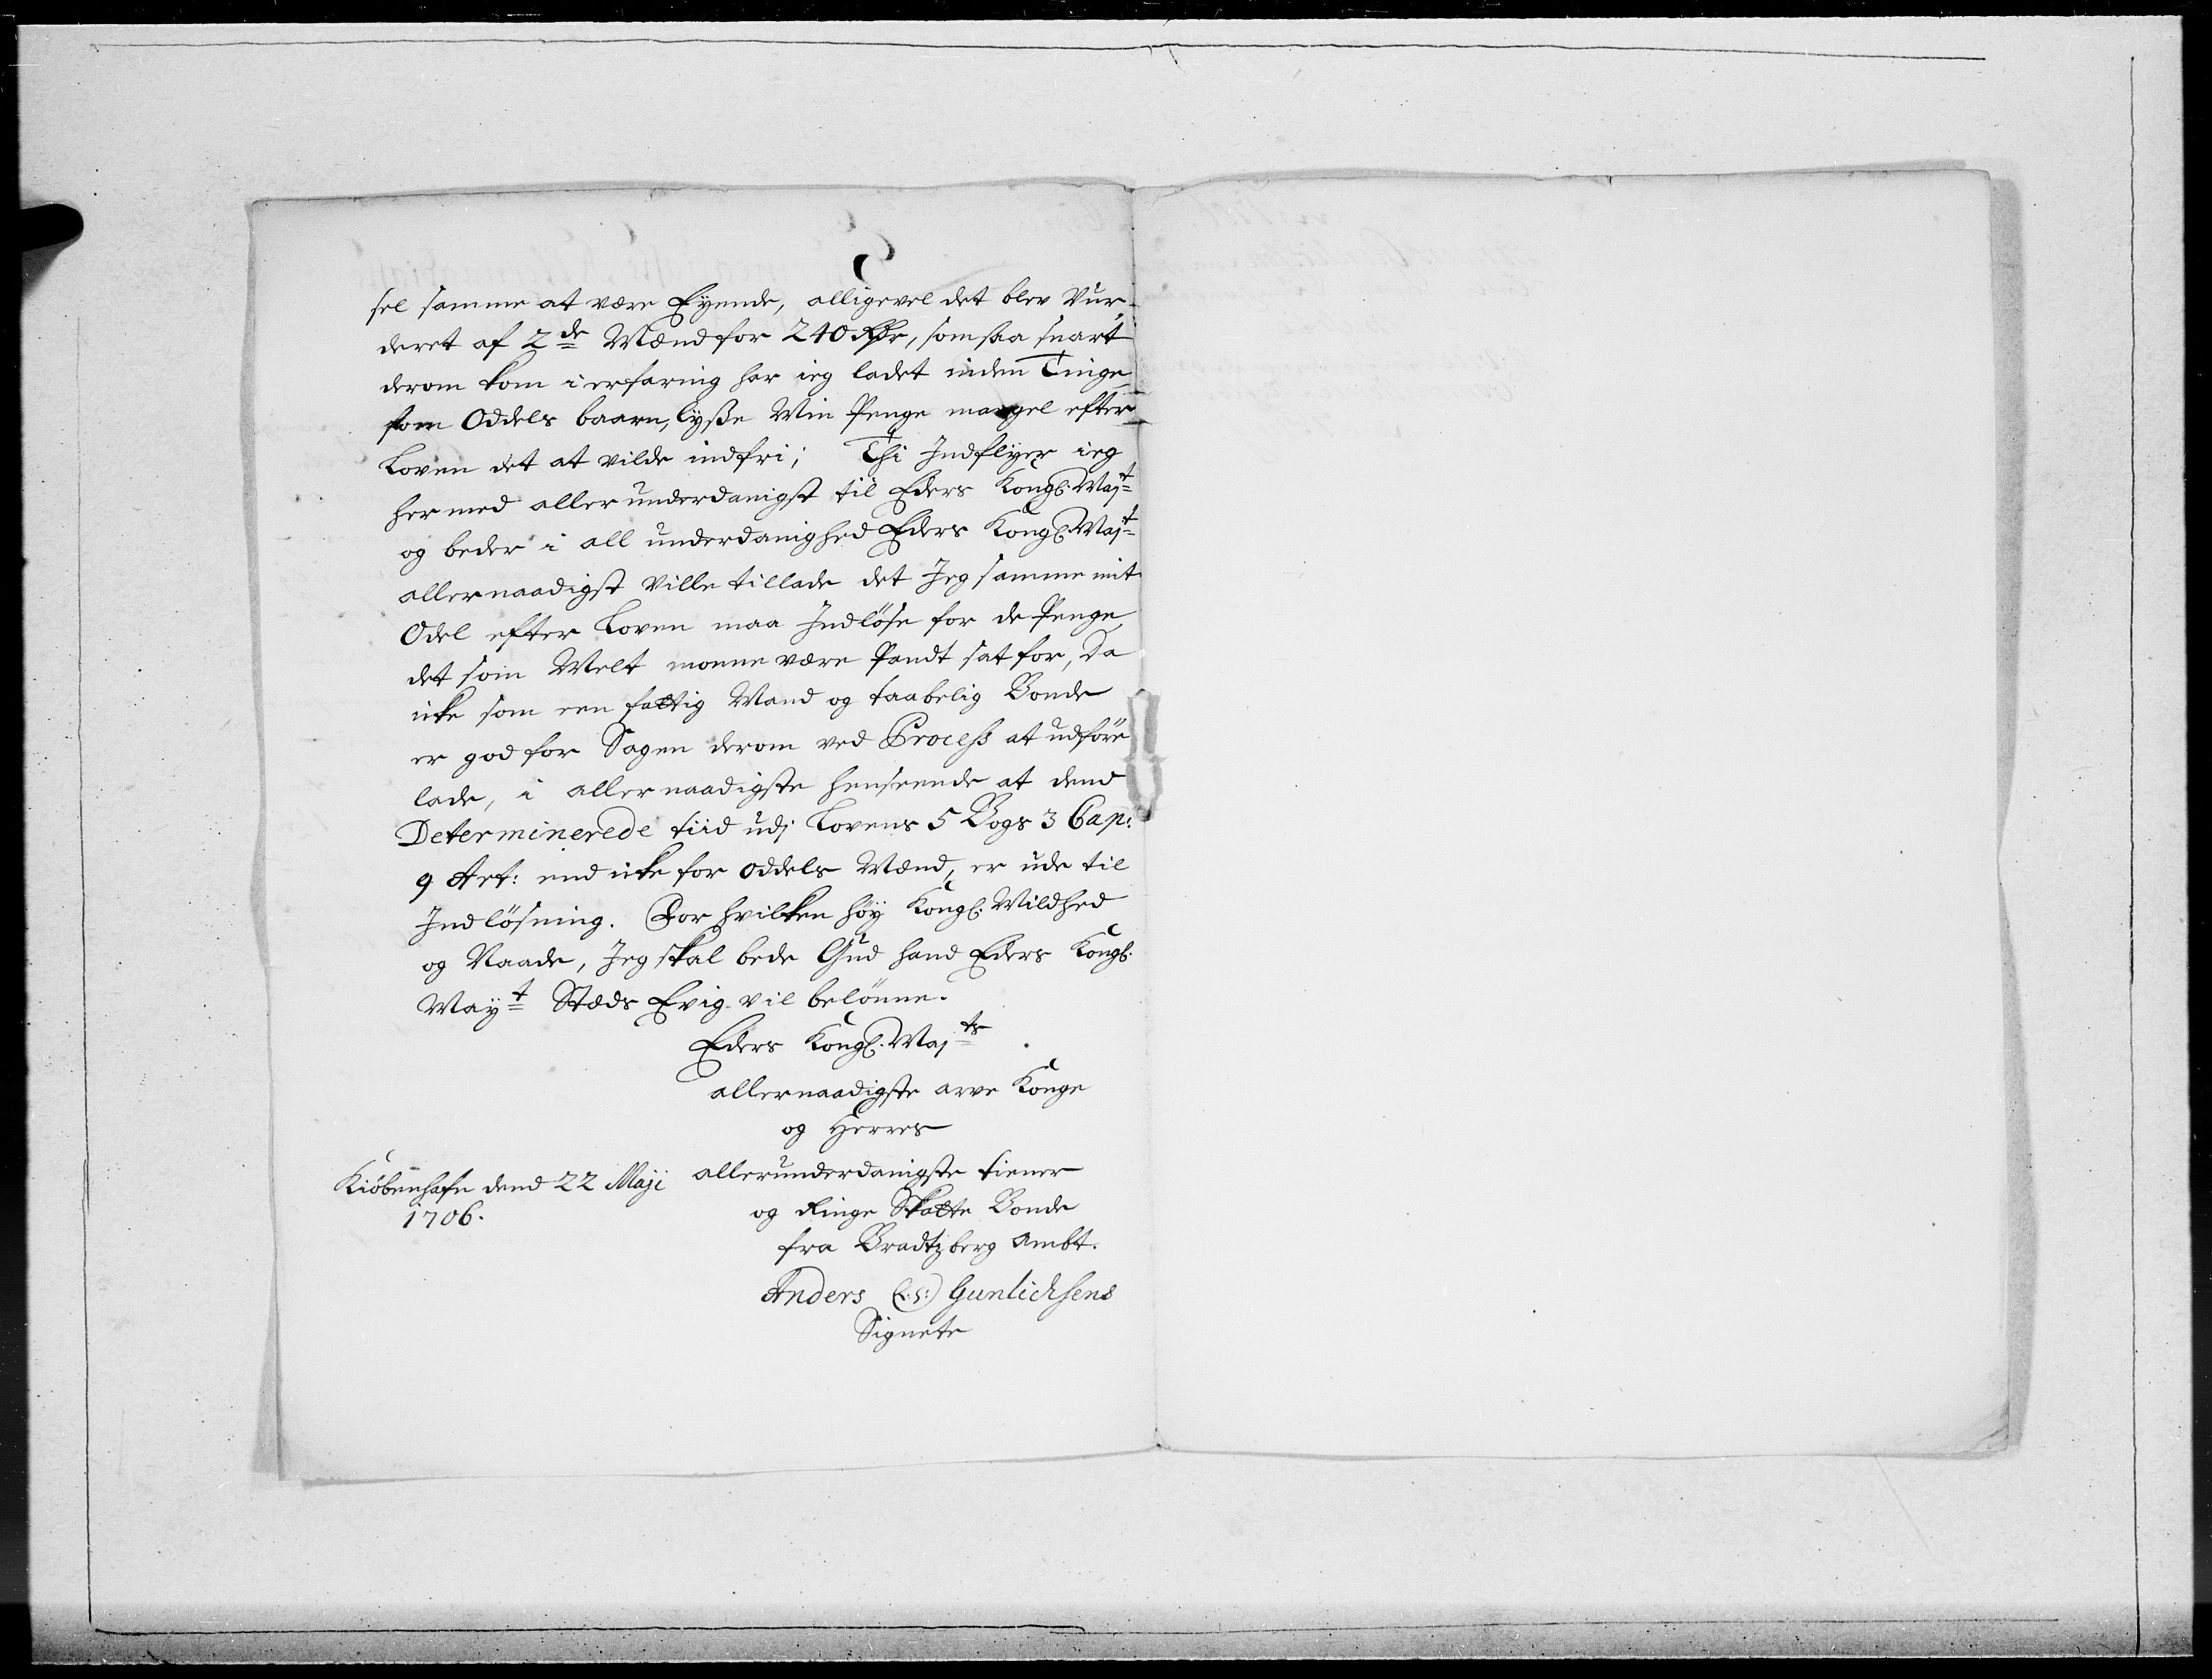 sel samme at være Eyende, alligevel det blev Vur¬
deret af 2de Mænd for 240 Rdr, som saa snart
derom kom i erfaring har ieg ladet inden Tinge
som Oddels baarn, lyße Min Penge mangel efter
Loven det at vilde indfri; Thi Indflyer ieg
hermed allerunderdanigst til Eders Kongl. Majt
og beder i all underdanighed Eders Kongl. Majt
allernaadigst Ville tillade det Jeg samme mit
Odel efter Loven maa Indløse for de Penge,
det som Melt monne være Pandt sat for, da
icke som een fattig Mand og taabelig Bonde
er god for Sagen derom ved Process at udføre
lade, i allernaadigste henseende at dend
Determinerede tiid udj Lovens 5 Bogs 3 Cap:
9 Art: end icke for oddels Mænd, er ude til
Indløsning. For hvilken høy Kongl. Mildhed
og Naade, Jeg skal bede Gud hand Eders Kongl.
Mayt Stæds Evig vil belønne.
Eders Kongl. Majts
allernaadigste arve Konge
og Herres
allerunderdanigste tiener
Kiøbenhafn dend 22 Maji
1706.
og Ringe Skatte Bonde
fra Bradtzberg Ambt.
Anders (L.S:) Gunlichsens
Signete